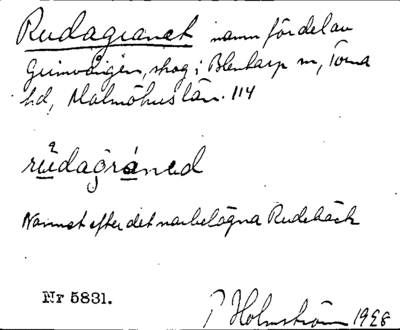 Rudagranet namn för del av
Grimvången, skog i Blentarp sn, Torna
hd, Malmöhus län. 114
rūdagrānəd
Namnet efter det närbelägna Rudebäck
Nr 5831.
P Holmström 1928